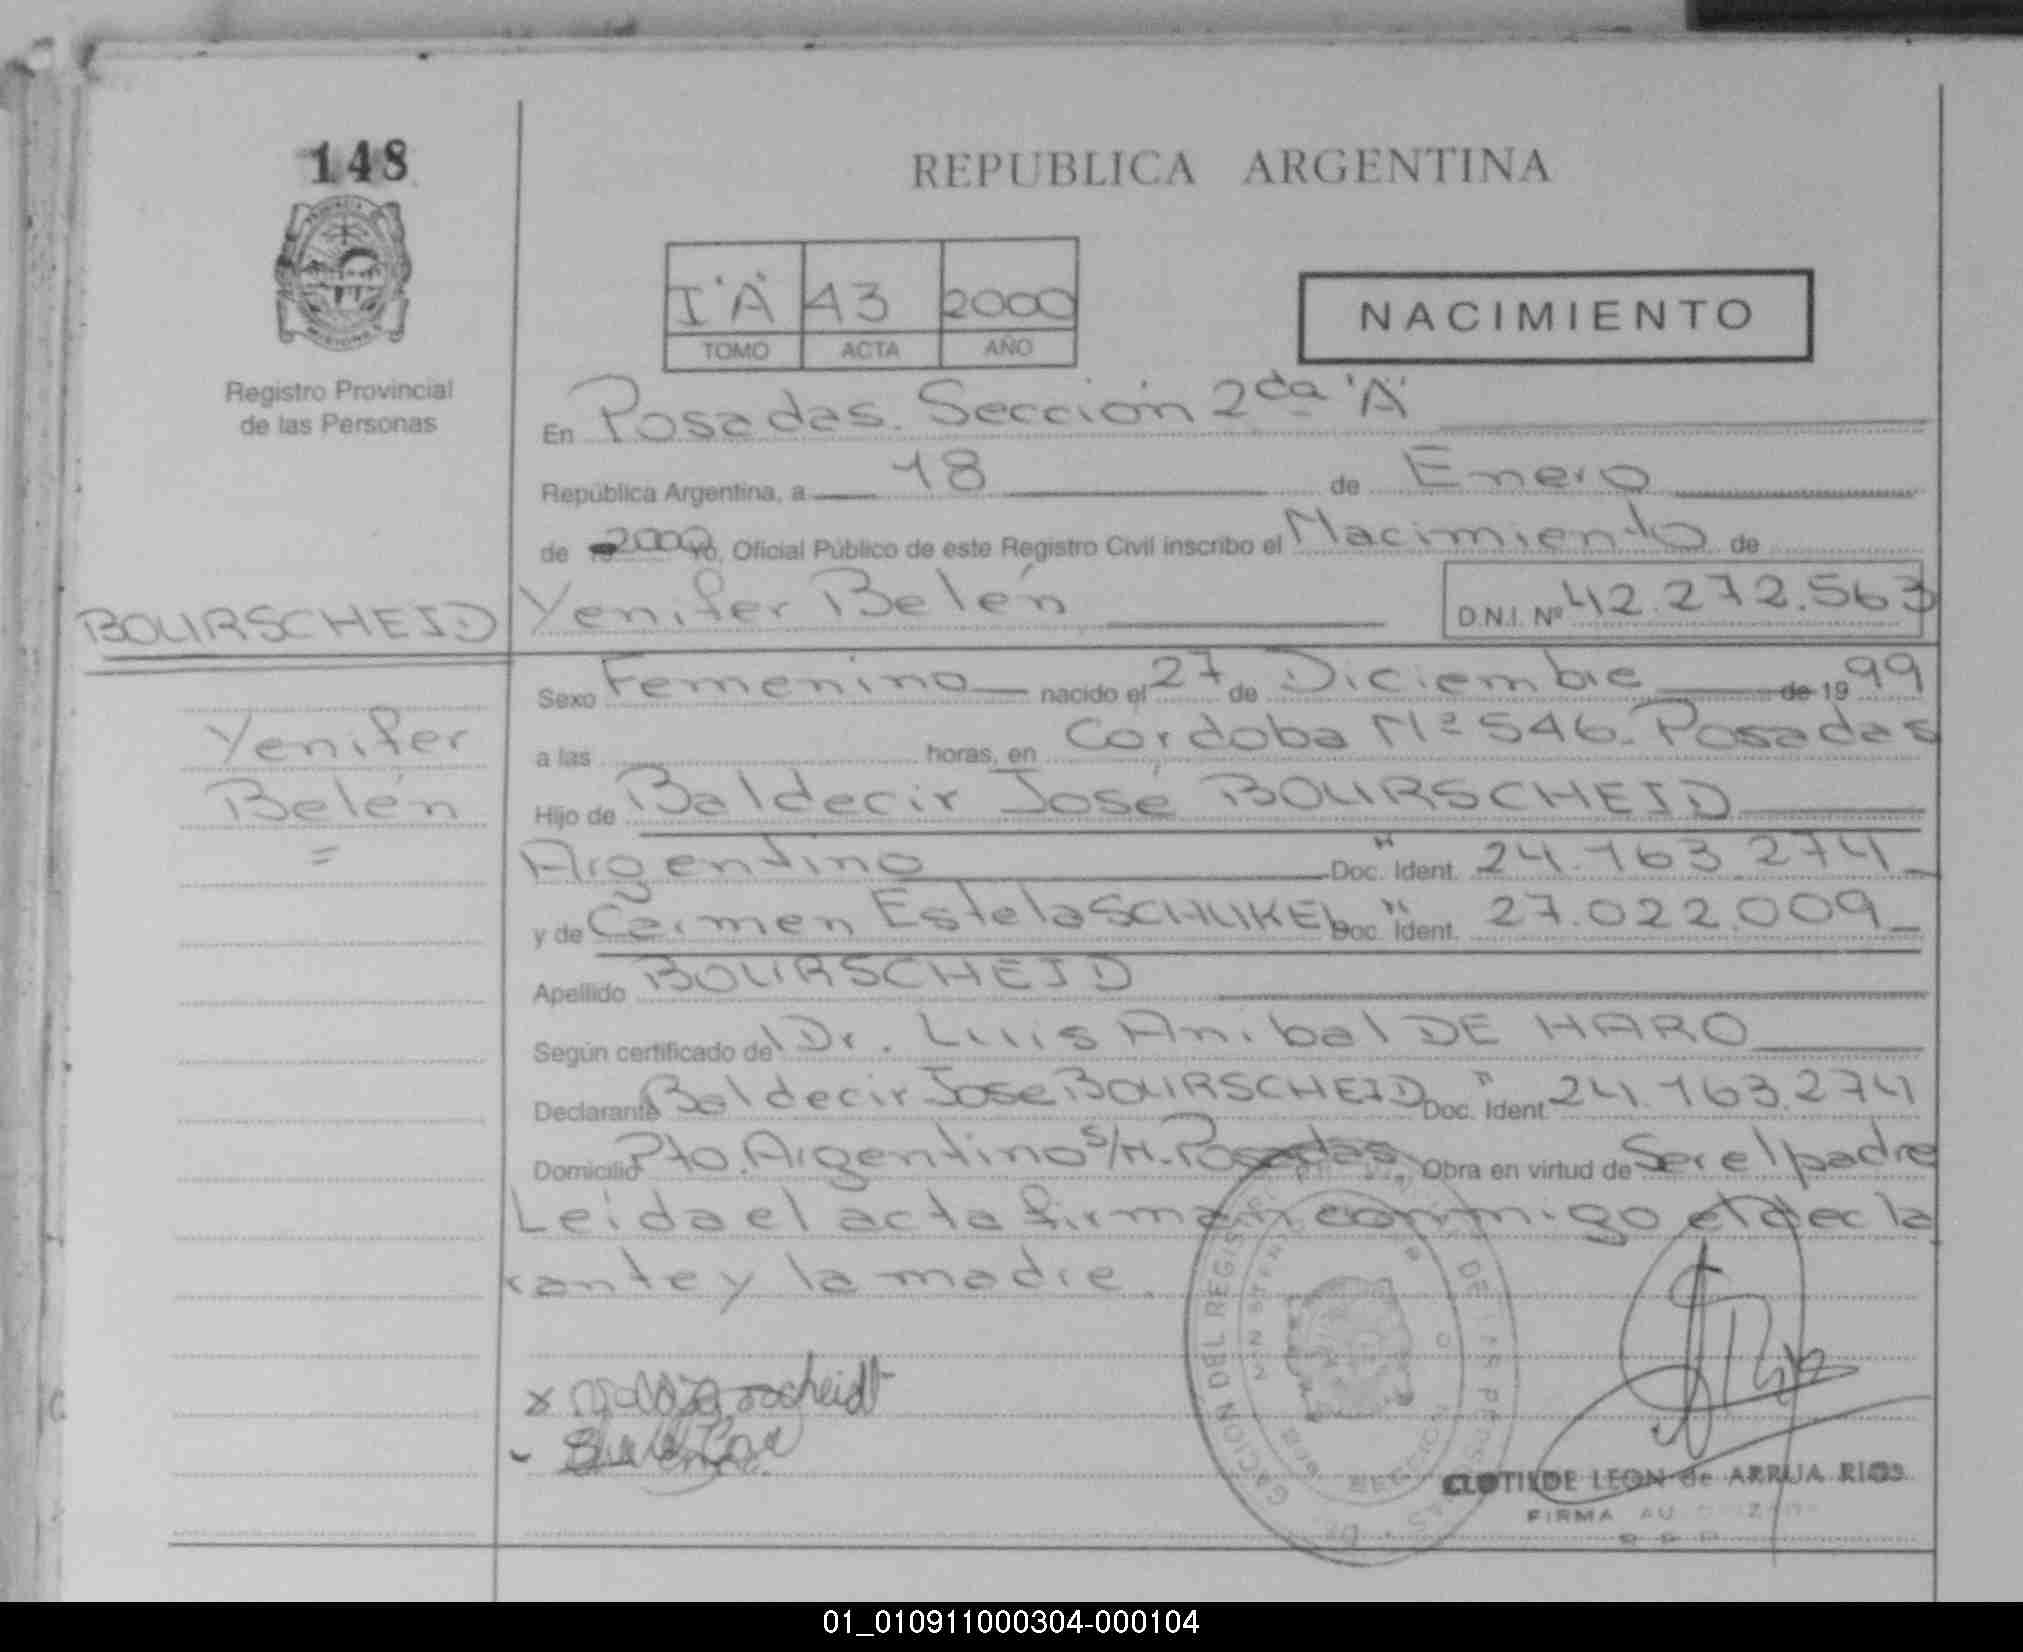 148
REPUBLICA ARGENTINA
I "A" 43 2000
TOMO ACTA AÑO
NACIMIENTO
Registro Provincial
de las Personas
En Posadas. Sección 2da "A"
República Argentina, a 18 de Enero
de 2000 Yo, Oficial Público de este Registro Civil inscribo el Nacimiento de
BOURSCHEID Yenifer Belén D.N.I. Nº 42.272.563
Sexo Femenino nacido el 27 de Diciembre de 1999
Yenifer
a las horas, en Córdoba Nº 546. Posadas
Belén
Hijo de Baldecir José BOURSCHEID
Argentino Doc. Ident. 24.163.274
y de Carmen Estela SCHUKEL Doc. Ident. 27.022.009
Apellido BOURSCHEID
Según certificado de Dr. Luis Anibal DE HARO
Declarante Baldecir Jose BOURSCHEID Doc. Ident. 24.163.274
Domicilio Pto. Argentino S/N. Posadas Obra en virtud de Ser el padre
Leída el acta firman conmigo el decla
rante y la madre.
CLOTILDE LEON de ARRUA RIOS
FIRMA
01_010911000304-000104